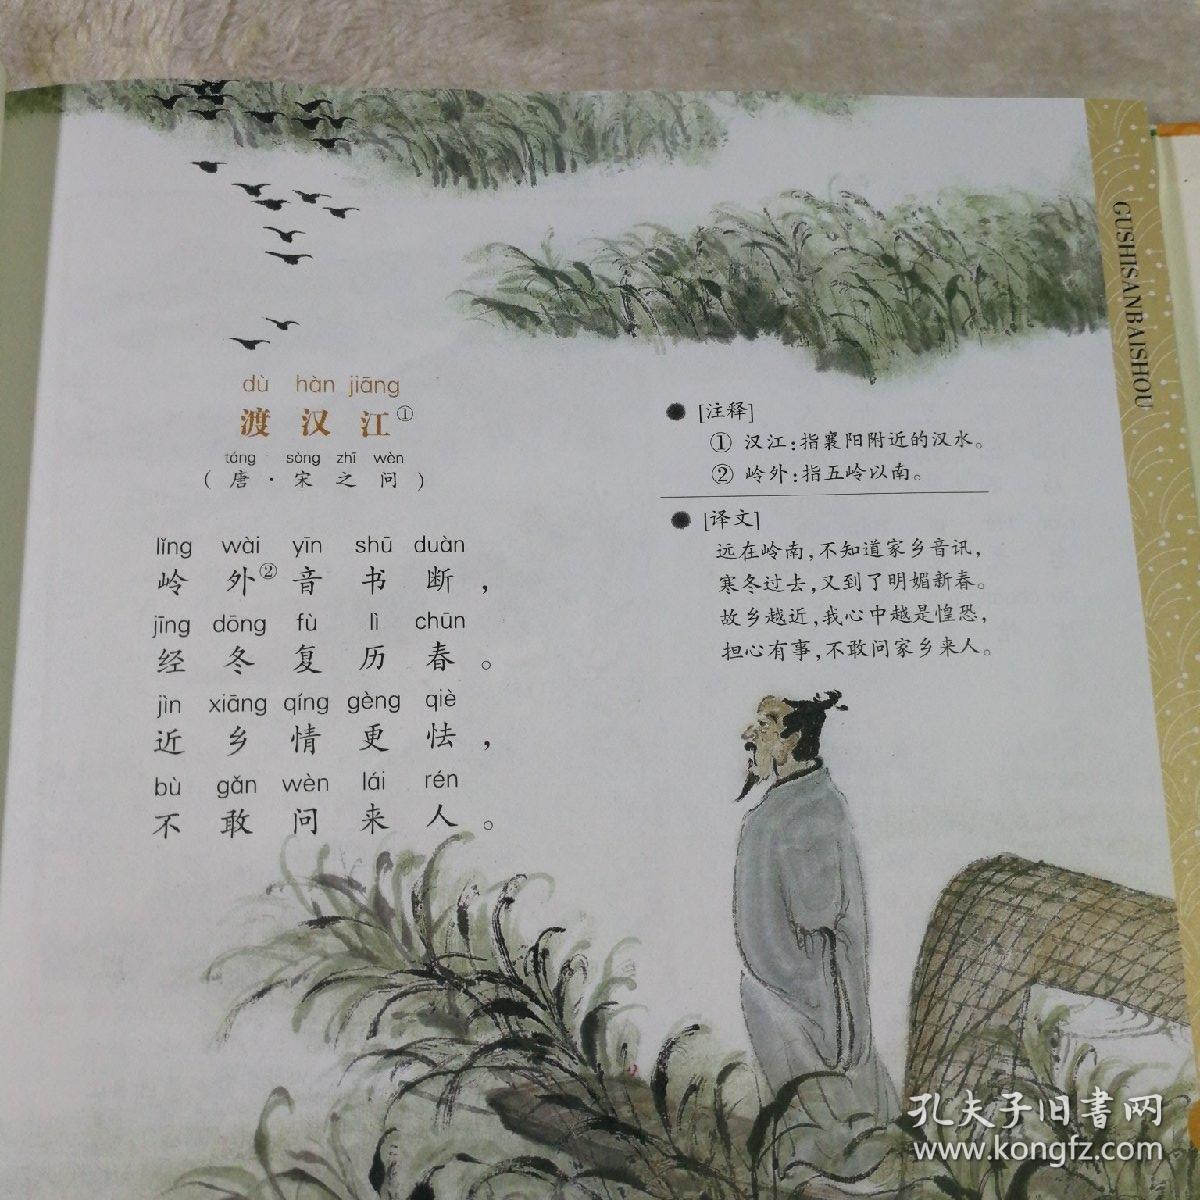 dù hàn jiāng
渡汉江①
táng sòng zhī wèn
（唐·宋之问）
lǐng wài yīn shū duàn
岭外②音书断，
jīng dōng fù lì chūn
经冬复历春。
jìn xiāng qíng gèng qiè
近乡情更怯，
bù gǎn wèn lái rén
不敢问来人。
[注释]
① 汉江：指襄阳附近的汉水。
② 岭外：指五岭以南。
[译文]
远在岭南，不知道家乡音讯，
寒冬过去，又到了明媚新春。
故乡越近，我心中越是惶恐，
担心有事，不敢问家乡来人。
GUSHISANBAISHOU
孔夫子旧書网
www.kongfz.com